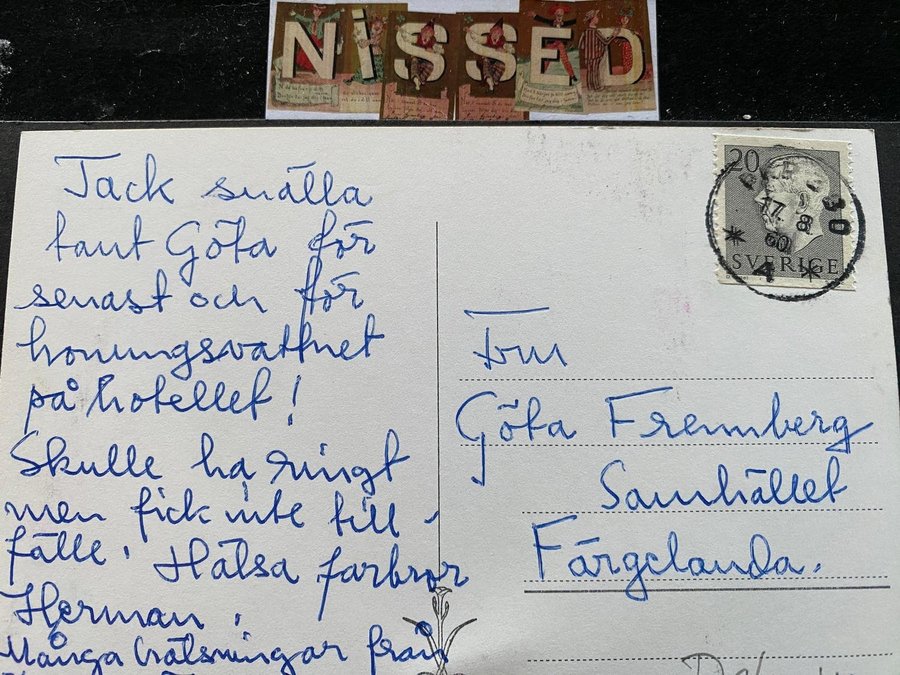 NISSED
Tack snälla
tant Göta för
senast och för
honungsvattnet
på hotellet!
Skulle ha ringt
men fick inte till-
fälle. Hälsa farbror
Herman.
Många hälsningar från
20
17. 8. 60
30
* 4 *
SVERIGE
Fru
Göta Fremberg
Samhället
Färgelanda.